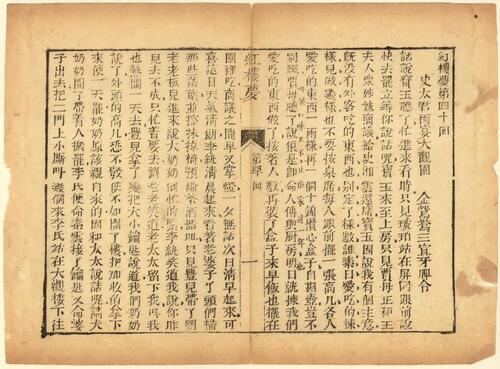 紅樓夢第四十回
史太君兩宴大觀園 金鴛鴦三宣牙牌令
話說寶玉聽了忙進來看時只見琥珀站在屏風跟前說
快去罷立等你說話呢寶玉來至上房只見賈母正和王
夫人衆姊妹商議給史湘雲還席寶玉因說我有個主意
旣沒有外客吃的東西也別定了樣數誰素日愛吃的揀
樣兒做幾樣也不要按桌席每人跟前擺一張高几各人
愛吃的東西一兩樣再一個十錦攢心盒子自斟壺豈不
別緻賈母聽了說狠是卽命人傳與厨房明日就揀我們
愛吃的東西做了按着人數再裝了盒子來早飯也擺在
紅樓夢
第四十回
一
園裡吃商議之間早又掌燈一夕無話次日清早起來可
喜這日天氣清朗李紈清晨起來看着老婆子丫頭們掃
那些落葉並擦抹桌椅預備茶酒器皿只見豐兒帶了劉
老老板兒進來說大奶奶倒忙的狠李紈笑道我說你昨
兒去不成只忙着要去劉老老笑道老太太留下我叫我
也熱鬧一天去豐兒拿了幾把大小鑰匙說道我們奶奶
說了外頭的高几恐不彀使不如開了樓把那收的拿下
來使一天罷奶奶原該親自來的因和太太說話呢請大
奶奶開了帶着人搬罷李氏便命素雲接了鑰匙又命婆
子出去把二門上小厮叫幾個來李氏站在大觀樓下往